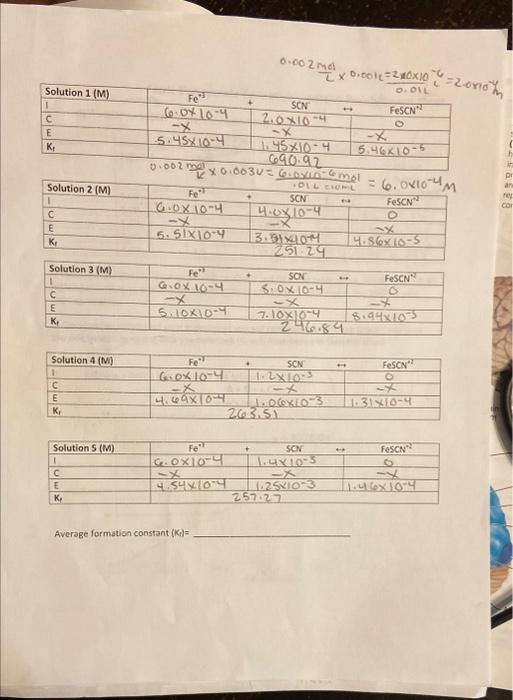 0.002 mol/L x 0.001L = 2.0x10⁻⁶/0.01L = 2.0x10⁻⁴ M
Solution 1 (M) Fe⁺³ + SCN⁻ ↔ FeSCN⁺²
I 6.0x10-4 2.0x10-4 0
C -x -x -x
E 5.45x10-4 1.45x10-4 5.46x10-5
Kf 690.92
0.002 mol/L x 0.003L = 6.0x10-6 mol/.01L = 10mL = 6.0x10-4 M
Solution 2 (M) Fe⁺³ + SCN⁻ ↔ FeSCN⁺²
I 6.0x10-4 4.0x10-4 0
C -x -x -x
E 5.51x10-4 3.51x10-4 4.86x10-5
Kf 251.24
Solution 3 (M) Fe⁺³ + SCN⁻ ↔ FeSCN⁺²
I 6.0x10-4 8.0x10-4 0
C -x -x -x
E 5.10x10-4 7.10x10-4 8.94x10-5
Kf 246.84
Solution 4 (M) Fe⁺³ + SCN⁻ ↔ FeSCN⁺²
I 6.0x10-4 1.2x10-3 0
C -x -x -x
E 4.69x10-4 1.06x10-3 1.31x10-4
Kf 263.51
Solution 5 (M) Fe⁺³ + SCN⁻ ↔ FeSCN⁺²
I 6.0x10-4 1.4x10-3 0
C -x -x -x
E 4.54x10-4 1.25x10-3 1.46x10-4
Kf 257.27
Average formation constant (Kf)= ____________